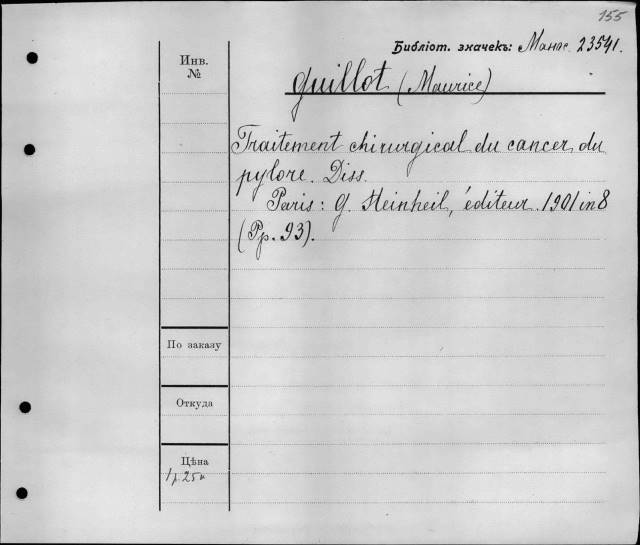 155
Библіот. значекъ: Манас. 23541.
Инв.
№
Guillot (Maurice)
Traitement chirurgical du cancer du
pylore. Diss.
Paris: G. Steinheil, éditeur. 1901 in 8
(Pp. 93).
По заказу
Откуда
Цѣна
1р 25к